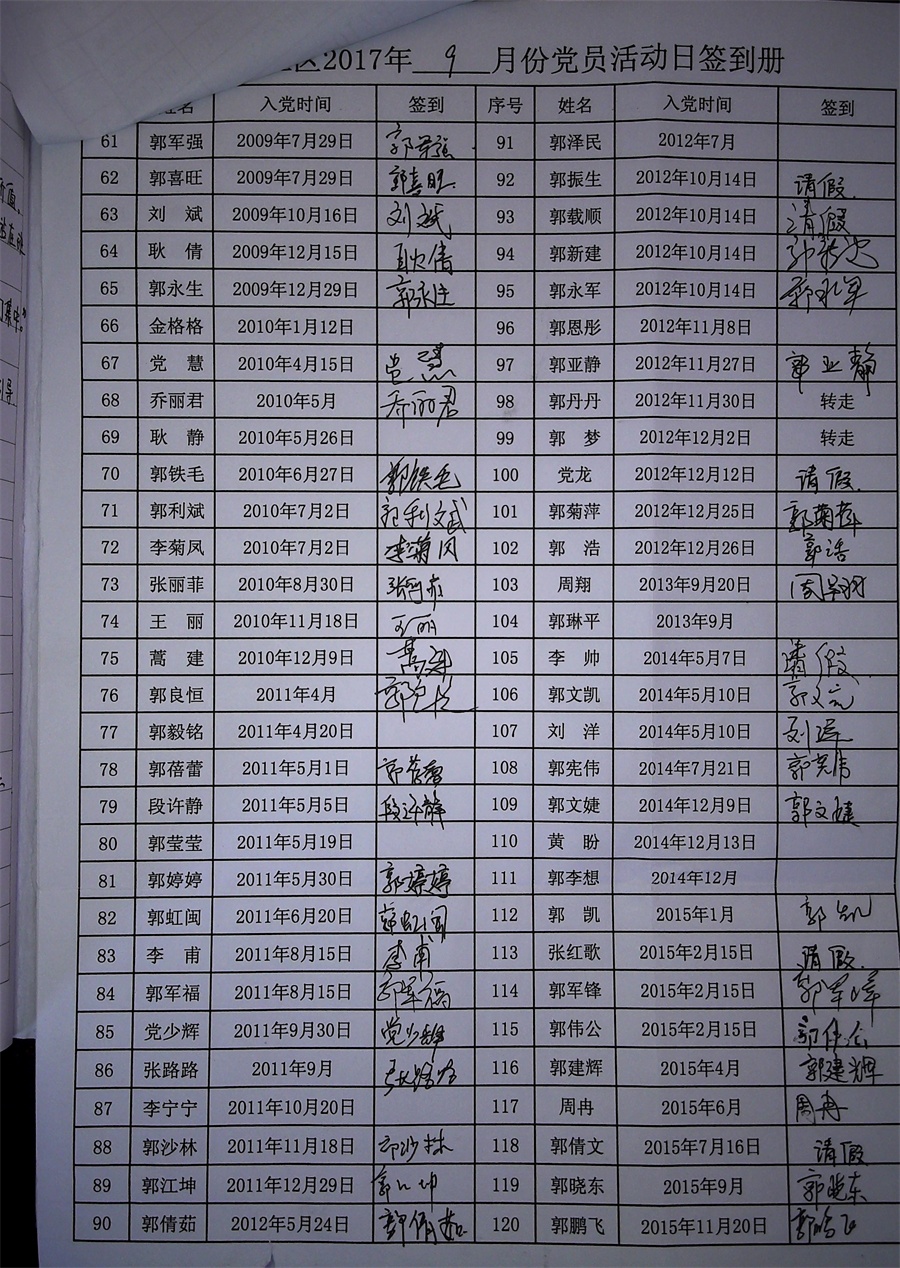 区2017年 9 月份党员活动日签到册
姓名 入党时间 签到 序号 姓名 入党时间 签到
61 郭军强 2009年7月29日 郭军强 91 郭泽民 2012年7月
62 郭喜旺 2009年7月29日 郭喜旺 92 郭振生 2012年10月14日 请假
63 刘 斌 2009年10月16日 刘斌 93 郭载顺 2012年10月14日 请假
64 耿 倩 2009年12月15日 耿倩 94 郭新建 2012年10月14日
65 郭永生 2009年12月29日 郭永生 95 郭永军 2012年10月14日 郭永军
66 金格格 2010年1月12日 96 郭恩彤 2012年11月8日
67 党 慧 2010年4月15日 党慧 97 郭亚静 2012年11月27日 郭亚静
68 乔丽君 2010年5月 乔丽君 98 郭丹丹 2012年11月30日 转走
69 耿 静 2010年5月26日 99 郭 梦 2012年12月2日 转走
70 郭铁毛 2010年6月27日 郭铁毛 100 党龙 2012年12月12日 请假
71 郭利斌 2010年7月2日 郭利斌 101 郭菊萍 2012年12月25日 郭菊萍
72 李菊凤 2010年7月2日 李菊凤 102 郭 浩 2012年12月26日 郭浩
73 张丽菲 2010年8月30日 张丽菲 103 周翔 2013年9月20日 周翔
74 王 丽 2010年11月18日 王丽 104 郭琳平 2013年9月
75 蒿 建 2010年12月9日 蒿建 105 李 帅 2014年5月7日 请假
76 郭良恒 2011年4月 郭良恒 106 郭文凯 2014年5月10日 郭文凯
77 郭毅铭 2011年4月20日 107 刘 洋 2014年5月10日 刘洋
78 郭蓓蕾 2011年5月1日 郭蓓蕾 108 郭宪伟 2014年7月21日 郭宪伟
79 段许静 2011年5月5日 段许静 109 郭文婕 2014年12月9日 郭文婕
80 郭莹莹 2011年5月19日 110 黄 盼 2014年12月13日
81 郭婷婷 2011年5月30日 郭婷婷 111 郭李想 2014年12月
82 郭虹闽 2011年6月20日 郭虹闽 112 郭 凯 2015年1月 郭凯
83 李 甫 2011年8月15日 李甫 113 张红歌 2015年2月15日 请假
84 郭军福 2011年8月15日 郭军福 114 郭军锋 2015年2月15日 郭军峰
85 党少辉 2011年9月30日 党少辉 115 郭伟公 2015年2月15日 郭伟公
86 张路路 2011年9月 张路路 116 郭建辉 2015年4月 郭建辉
87 李宁宁 2011年10月20日 117 周冉 2015年6月 周冉
88 郭沙林 2011年11月18日 郭沙林 118 郭倩文 2015年7月16日 请假
89 郭江坤 2011年12月29日 郭江坤 119 郭晓东 2015年9月 郭晓东
90 郭倩茹 2012年5月24日 郭倩茹 120 郭鹏飞 2015年11月20日 郭鹏飞